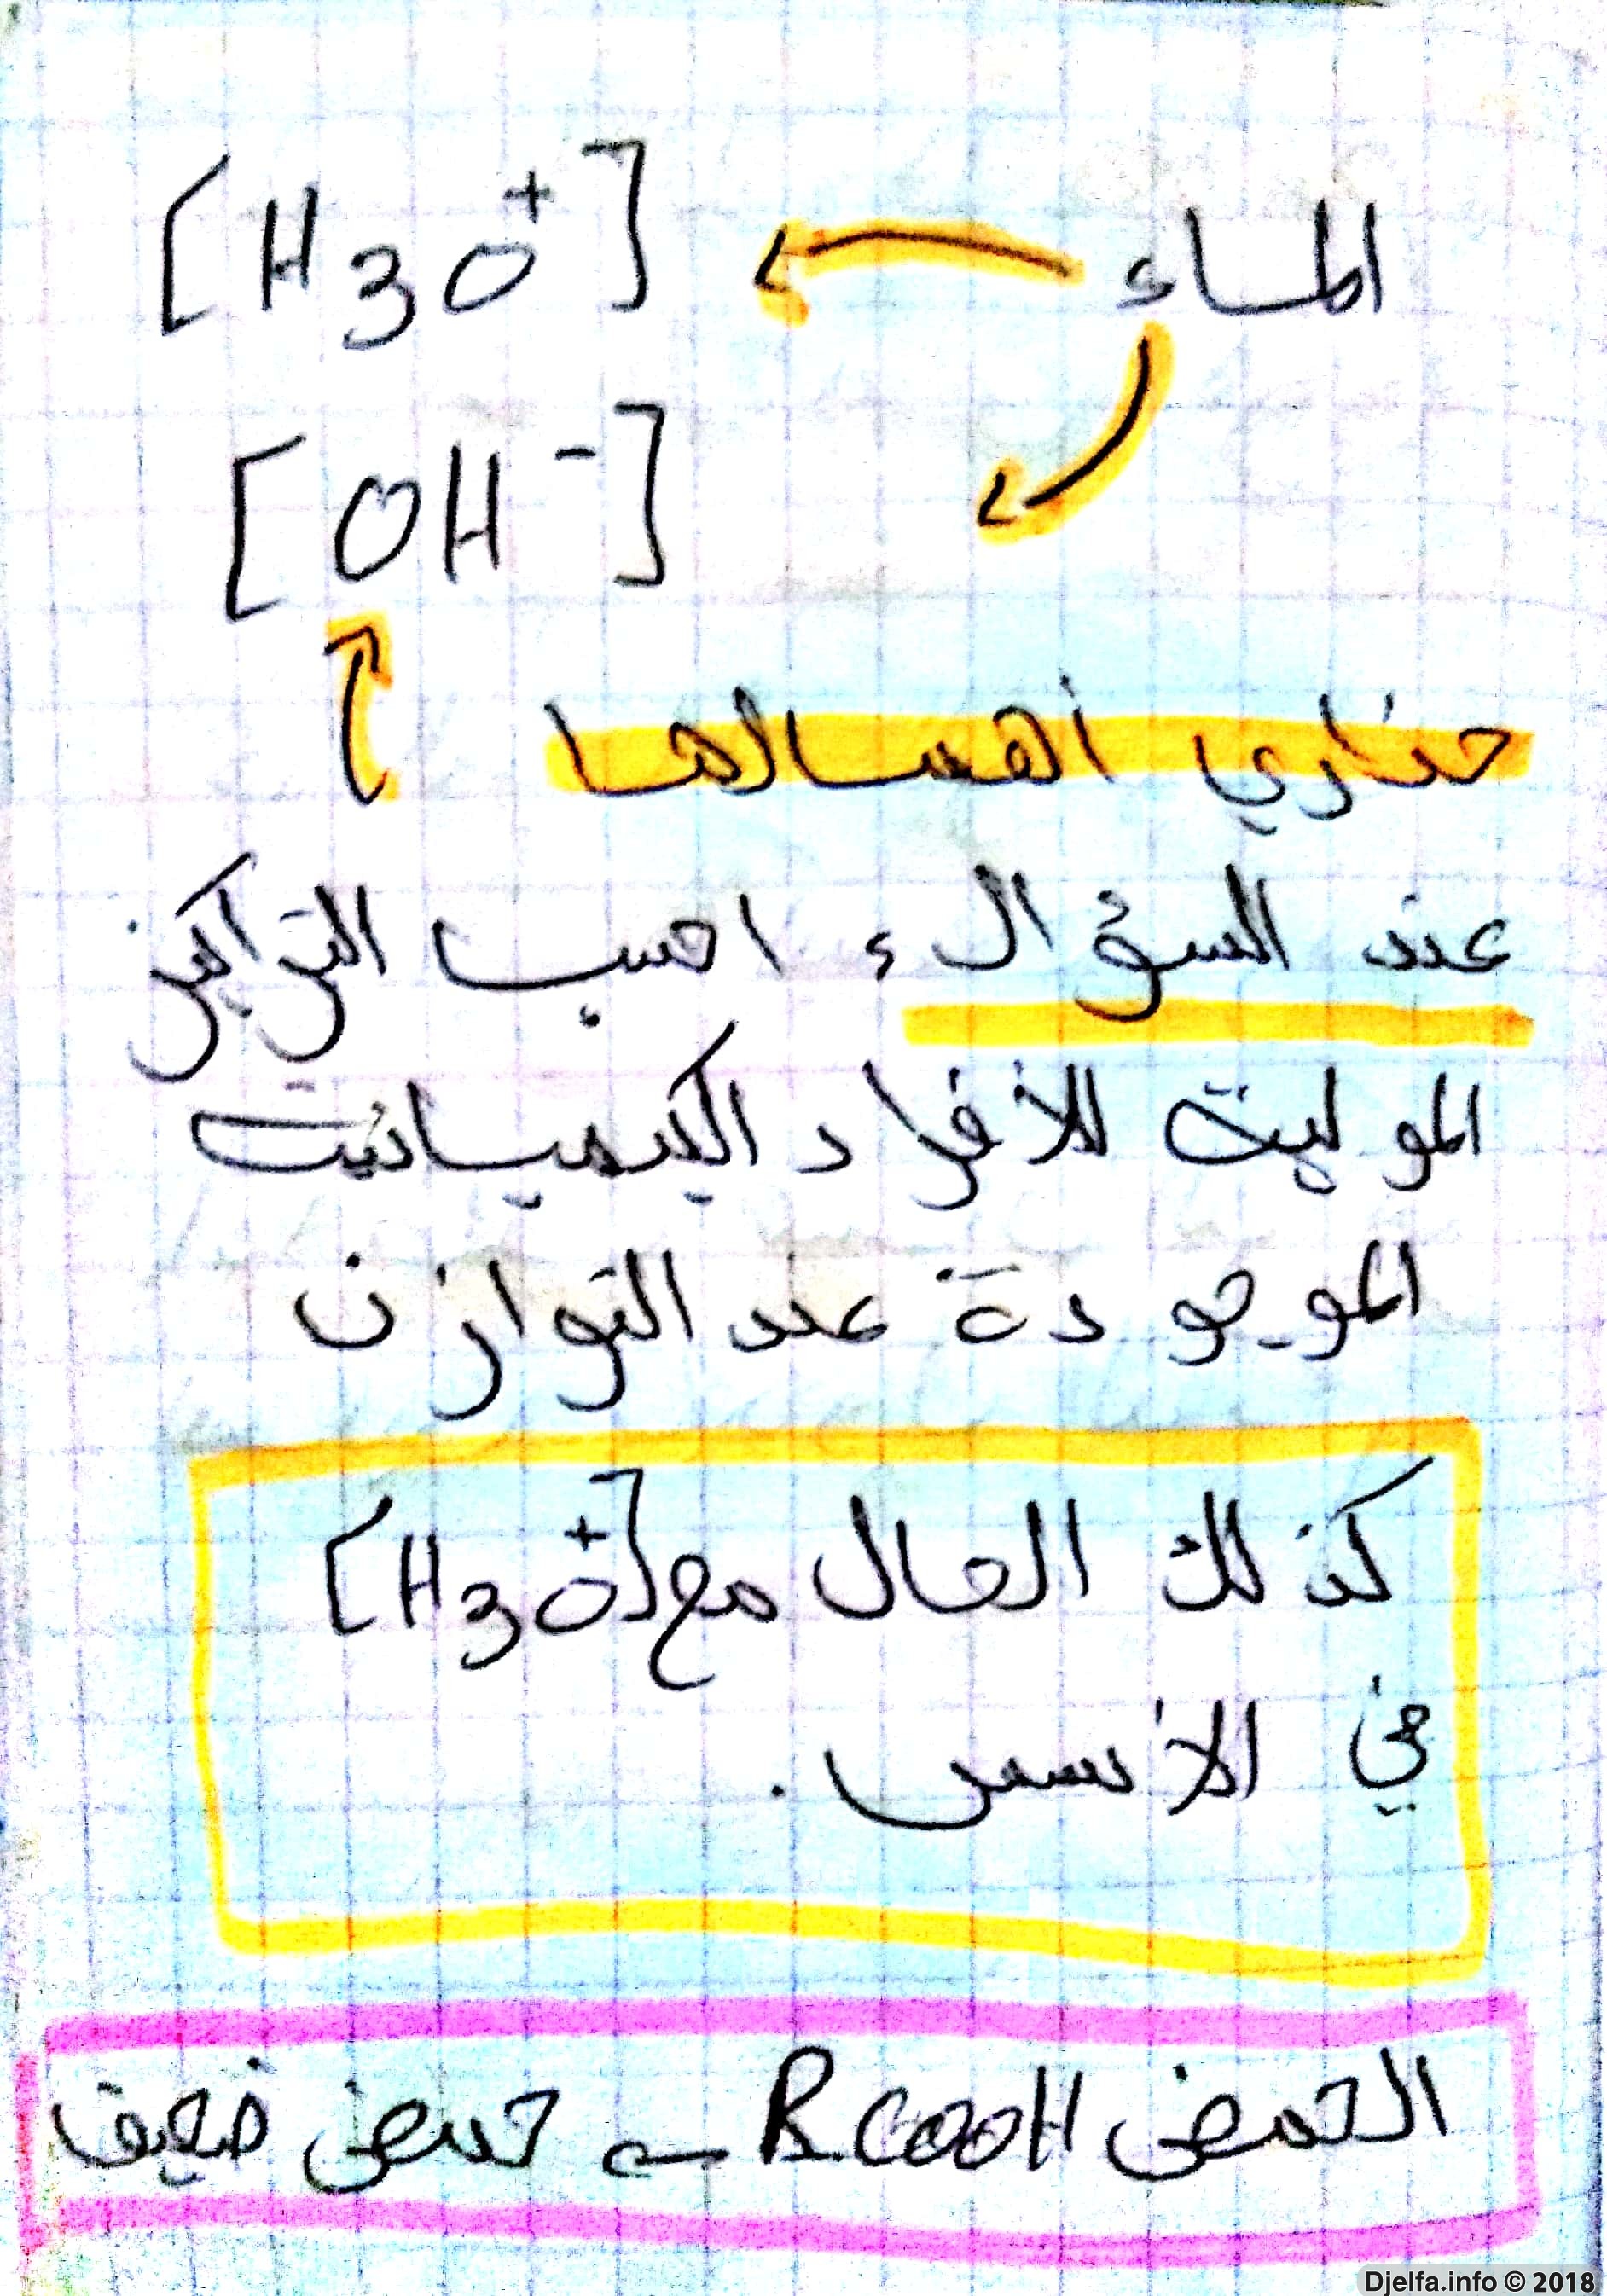 الماء [H3O+]
[OH-]
حذاري أهمالها
عند السؤال، احسب التراكيز
المولية للأفراد الكيميائية
الموجودة عند التوازن
كذلك الحال مع [H3O+]
في الأسس.
الحمض RCOOH ← حمض ضعيف
Djelfa.info © 2018